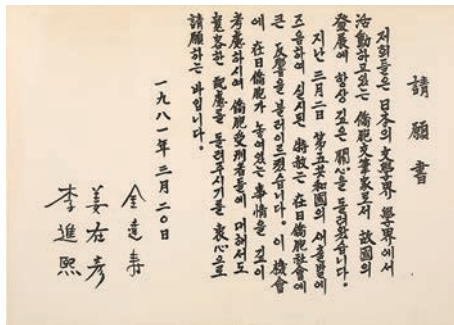 請願書
저희들은 日本의 文學界 學界에서
活動하고있는 僑胞文筆家로서 故國의
發展에 항상 깊은 關心을 돌려왔습니다.
지난 三月二日 第五共和國의 새출발에
즈음하여 실시된 特赦는 在日僑胞社會에
큰 反響을 불러이르켰습니다. 이 機會
에 在日僑胞가 놓여있는 事情을 깊이
考慮하시여 僑胞受刑者들에 대해서도
寬容한 配慮를 돌려주시기를 衷心으로
請願하는 바입니다.
一九八一年 三月 二○日
金達壽
姜在彦
李進熙